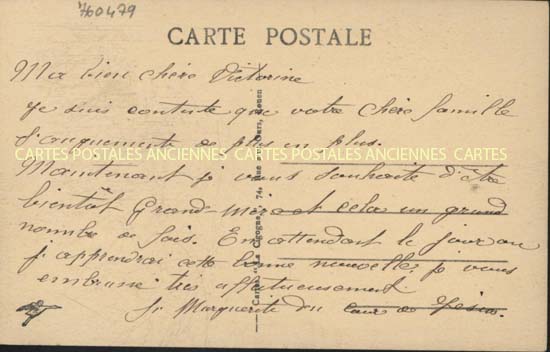 760479
CARTE POSTALE
Ma bien chère Victorine
Je suis contente que votre chère famille
s'augmente de plus en plus.
CARTES POSTALES ANCIENNES CARTES POSTALES ANCIENNES CARTES
Maintenant je vous souhaite d'être
bientôt Grand mère et cela un grand
nombre de fois. En attendant le jour où
j'apprendrai cette bonne nouvelle je vous
embrasse très affectueusement
Sr Marguerite du
Cartes "La Cigogne" 74, rue Rouen